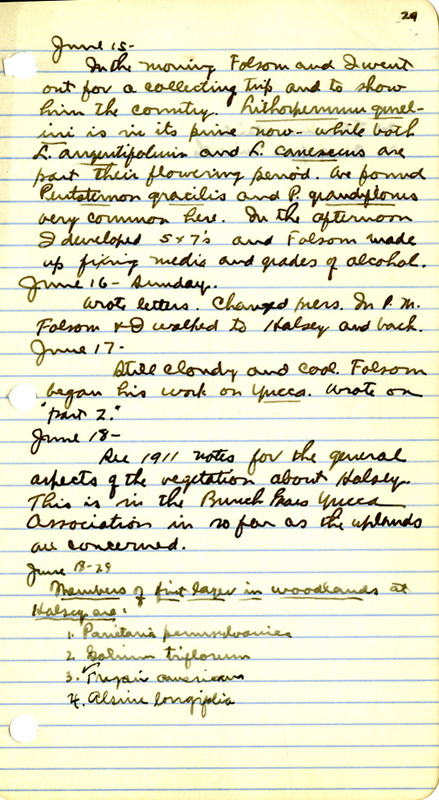 29
June 15-
In the morning Folsom and I went
out for a collecting trip and to show
him the country. Lithospermum gmel-
ini is in its prime now- while both
L. angustifolium and L. canescens are
past their flowering period. We found
Pentstemon gracilis and P. grandiflorus
very common here. In the afternoon
I developed 5x7's and Folsom made
up fixing media and grades of alcohol.
June 16- Sunday.
Wrote letters. Changed In P.M.
Folsom & I walked to Halsey and back.
June 17-
Still cloudy and cool. Folsom
began his work on Yucca. Wrote on
"Part 2."
June 18-
See 1911 notes for the general
aspects of the vegetation about Halsey.
This is in the Bunch Grass Yucca
Association in so far as the uplands
are concerned.
June 18-29
Members of first layer in woodlands at
Halsey are:
1. Parietaria pennsylvanica
2. Galium triflorum
3. americana
4. Alsine longifolia